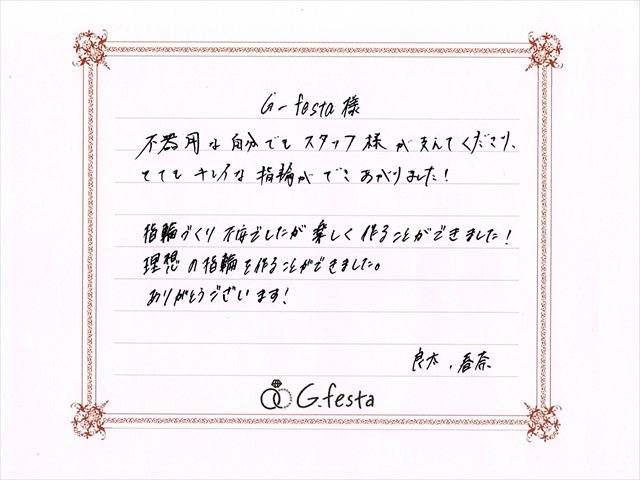 G-festa 様
不器用な自分でもスタッフ様が支えてくださり、
とてもキレイな指輪ができあがりました!
指輪づくり不安でしたが楽しく作ることができました!
理想の指輪を作ることができました。
ありがとうございます!
良太、春奈
G.festa